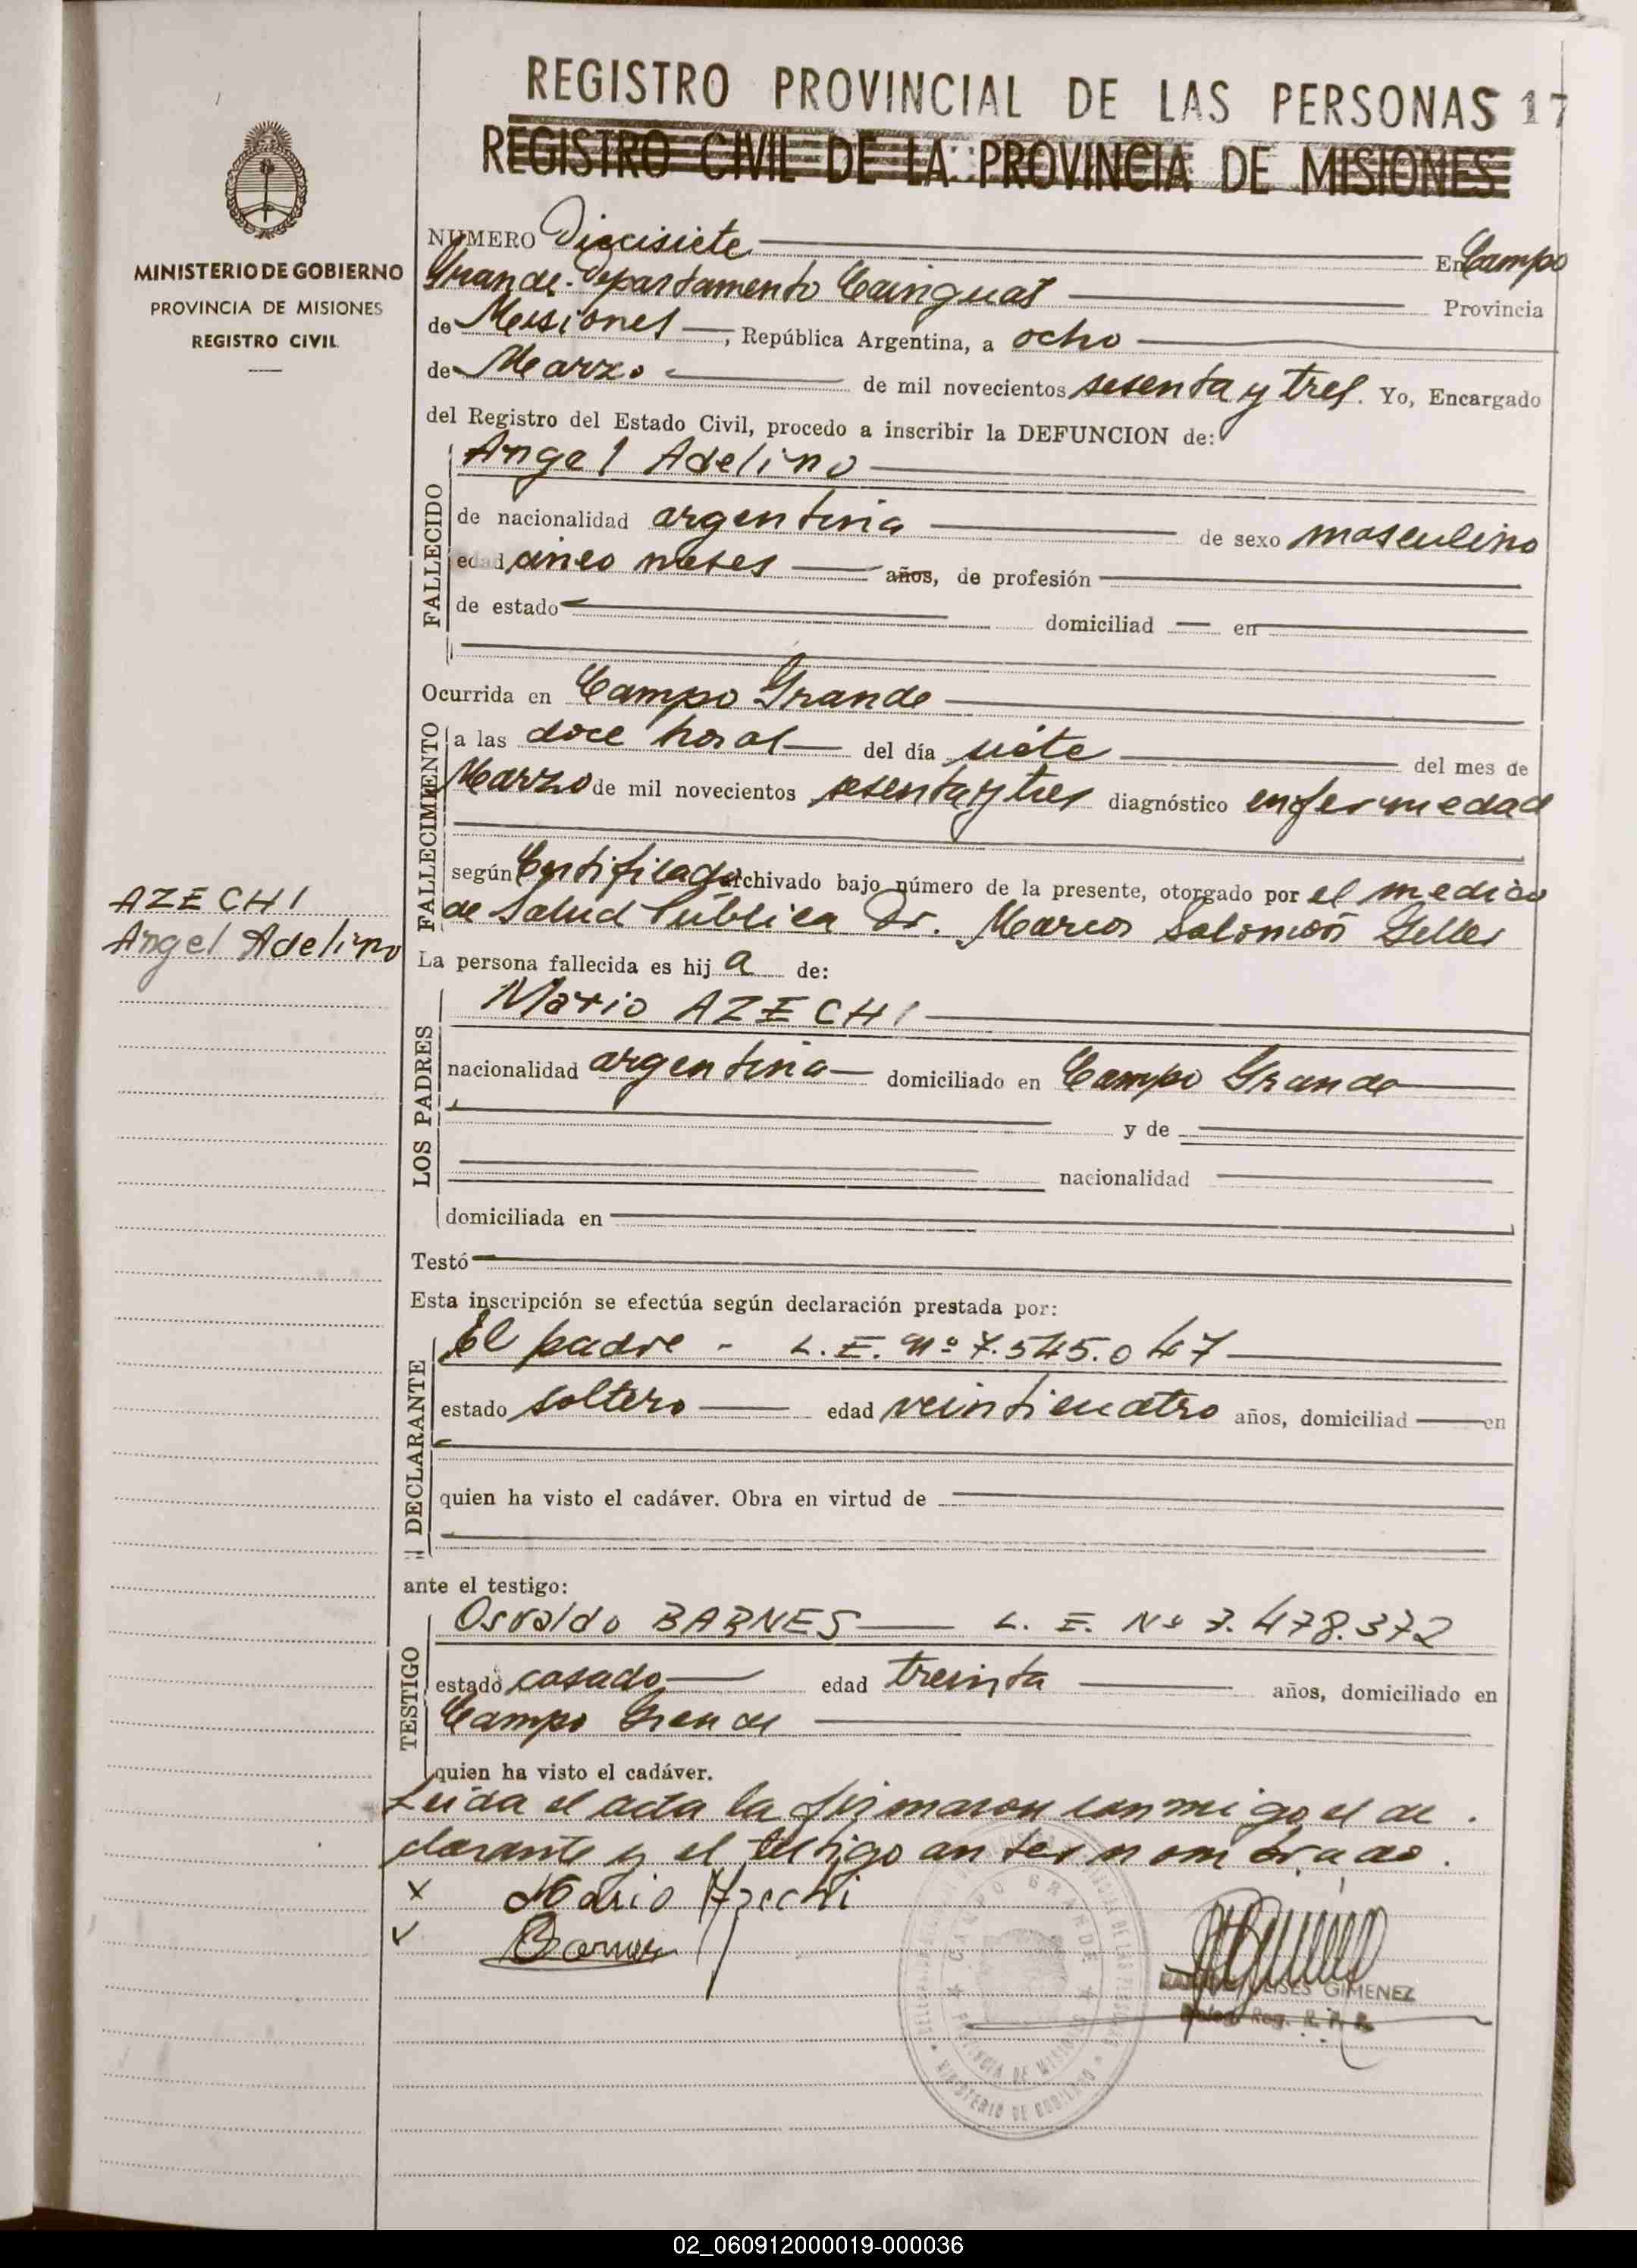 REGISTRO PROVINCIAL DE LAS PERSONAS 17
REGISTRO CIVIL DE LA PROVINCIA DE MISIONES
MINISTERIO DE GOBIERNO
PROVINCIA DE MISIONES
REGISTRO CIVIL
NUMERO Diecisiete En Campo
Grande. Departamento Cainguas Provincia
de Misiones, República Argentina, a ocho
de Marzo de mil novecientos sesenta y tres. Yo, Encargado
del Registro del Estado Civil, procedo a inscribir la DEFUNCION de:
FALLECIDO
Angel Adelino
de nacionalidad argentina de sexo masculino
edad cinco meses años, de profesión
de estado domiciliad en
Ocurrida en Campo Grande
FALLECIMIENTO
a las doce horas del día siete del mes de
Marzo de mil novecientos sesenta y tres diagnóstico enfermedad
según Certificado archivado bajo número de la presente, otorgado por el medico
de Salud Pública Dr. Marcos Salomón Geller
AZECHI
Angel Adelino
La persona fallecida es hij a de:
LOS PADRES
Mario AZECHI
nacionalidad argentina domiciliado en Campo Grande
y de
nacionalidad
domiciliada en
Testó
Esta inscripción se efectúa según declaración prestada por:
DECLARANTE
El padre - L. E. Nº 7.545.047
estado soltero edad veinticuatro años, domiciliad en
quien ha visto el cadáver. Obra en virtud de
ante el testigo:
TESTIGO
Osvaldo BARNES L. E. Nº 7.478.372
estado casado edad treinta años, domiciliado en
Campo Grande
quien ha visto el cadáver.
Leída el acta la firmaron conmigo el de.
clarante y el testigo antes nombrado.
x Mario Azechi
Barnes
CAMPO GRANDE
PROVINCIA DE MISIONES
MINISTERIO DE GOBIERNO
ULISES GIMENEZ
Reg. R. P. P.
02_060912000019-000036